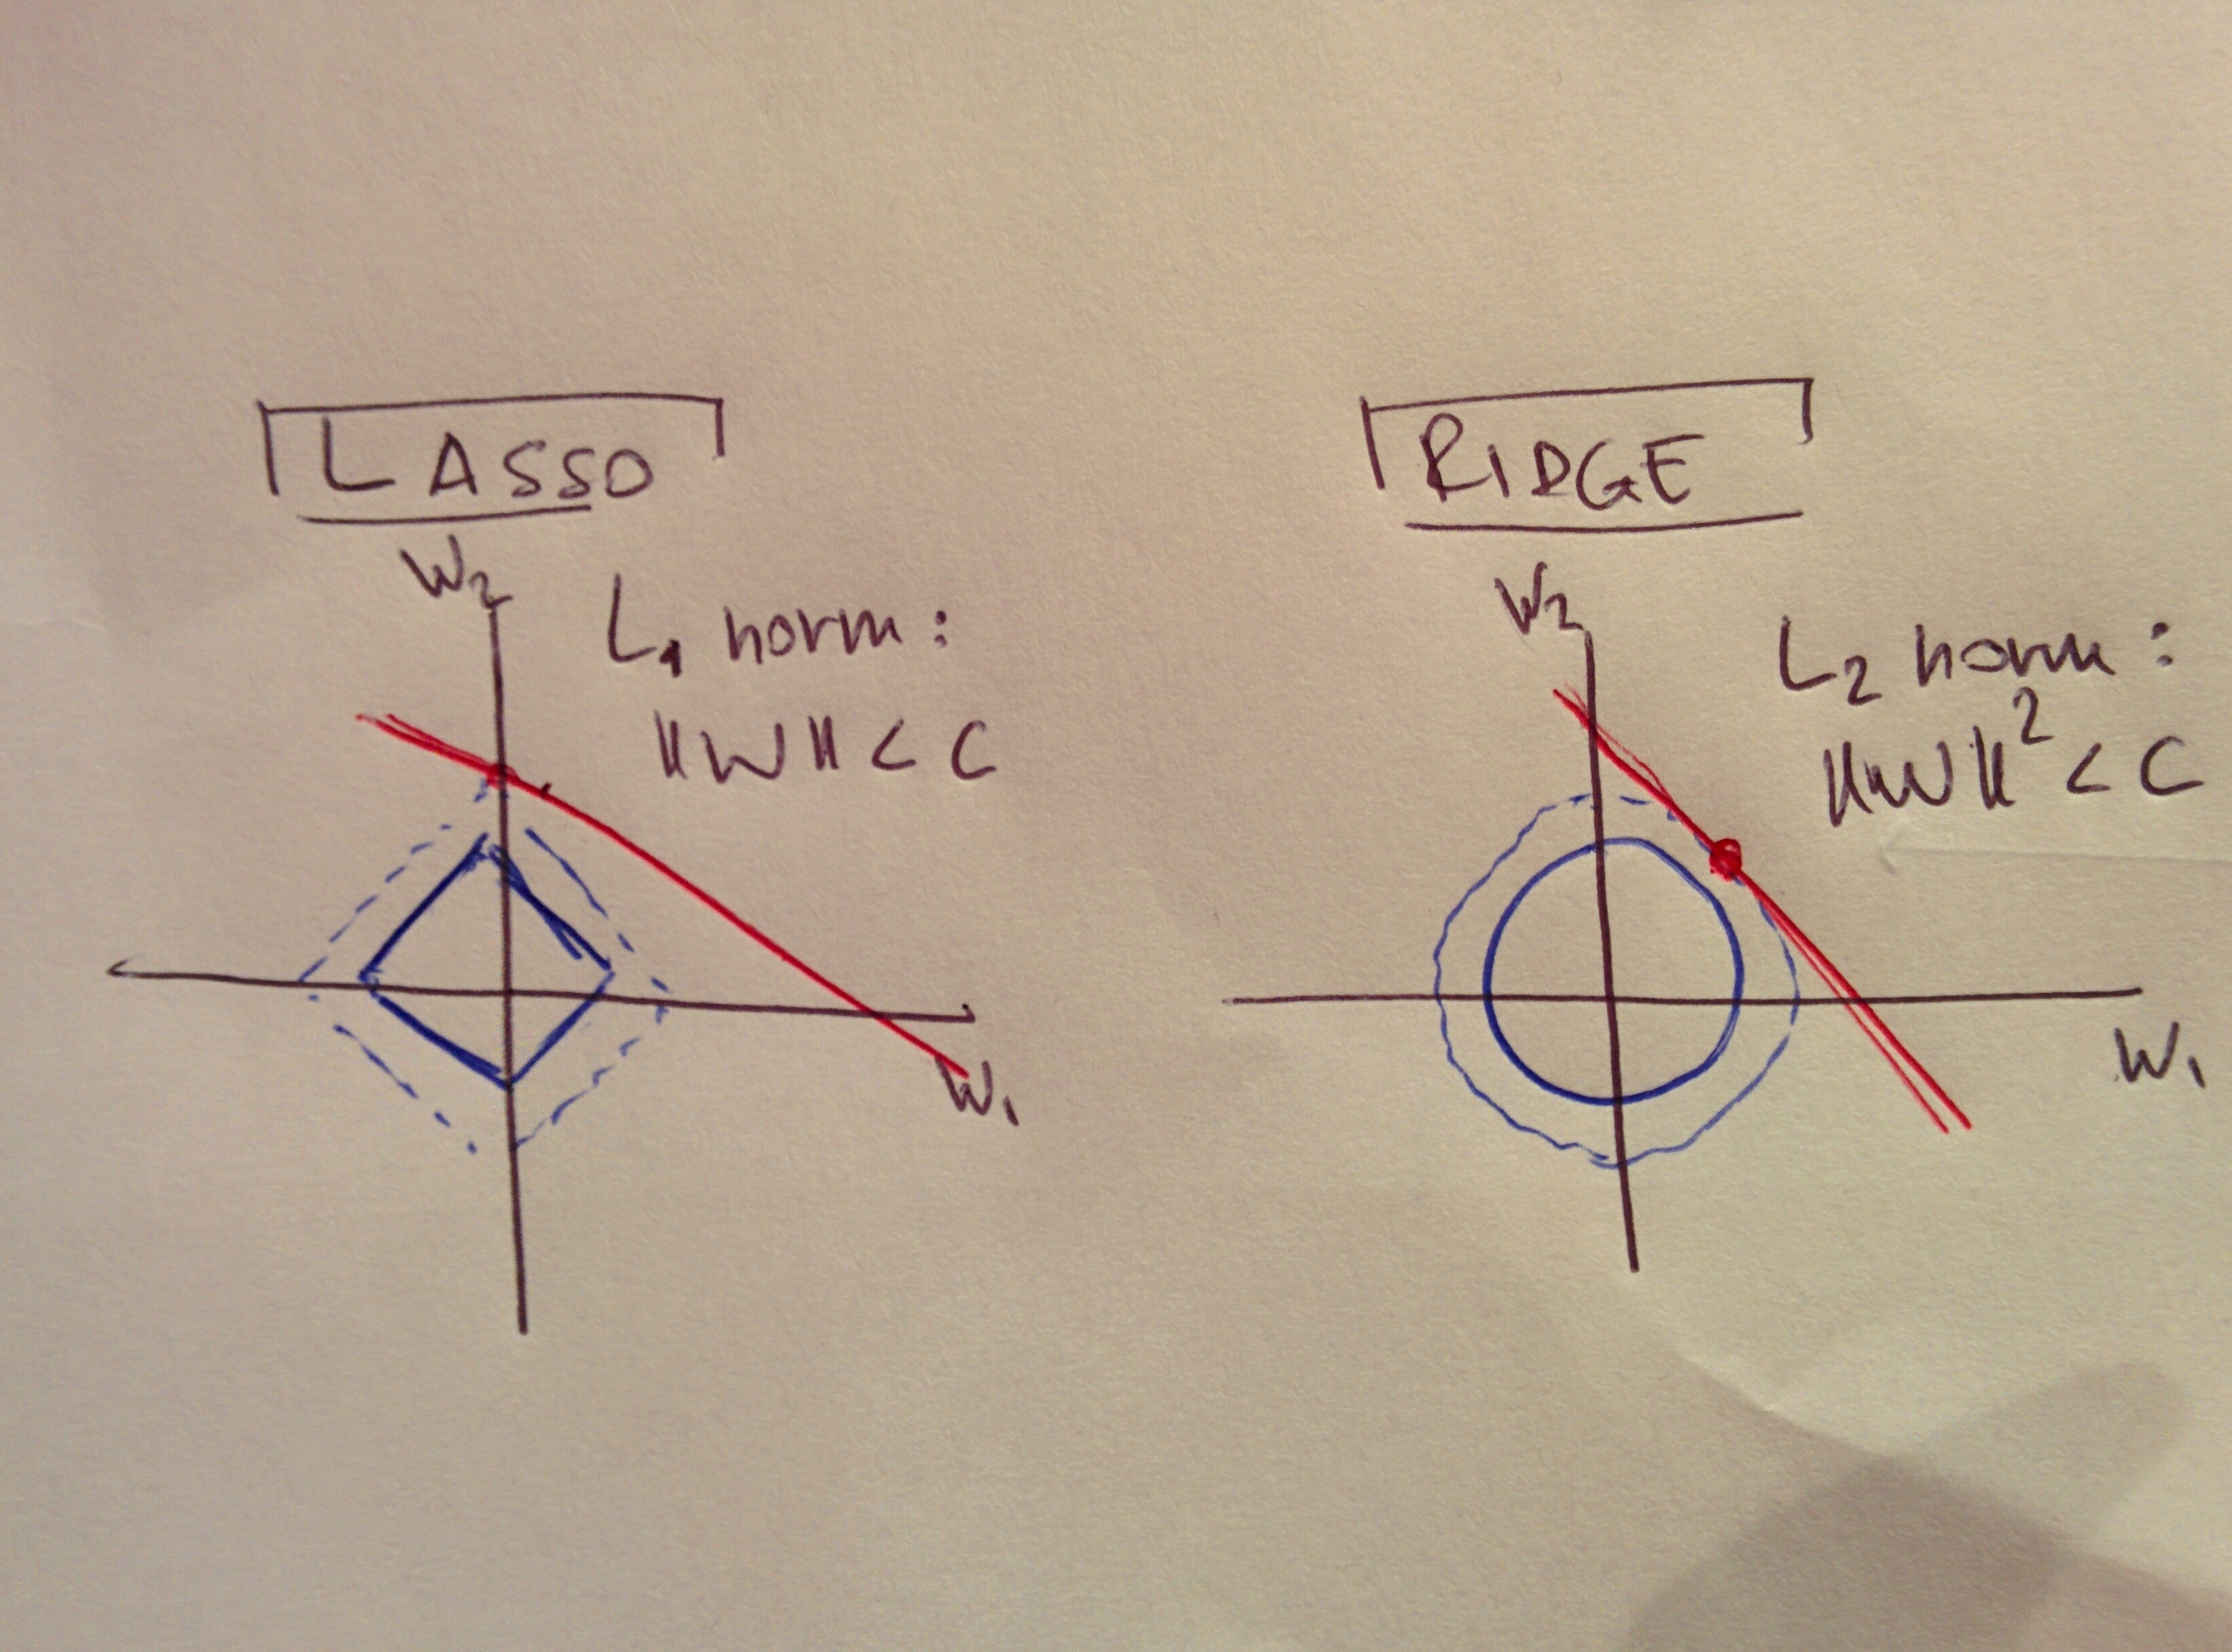 LASSO
W₂
L₁ norm:
||W|| < C
W₁
RIDGE
W₂
L₂ norm:
||W||² < C
W₁